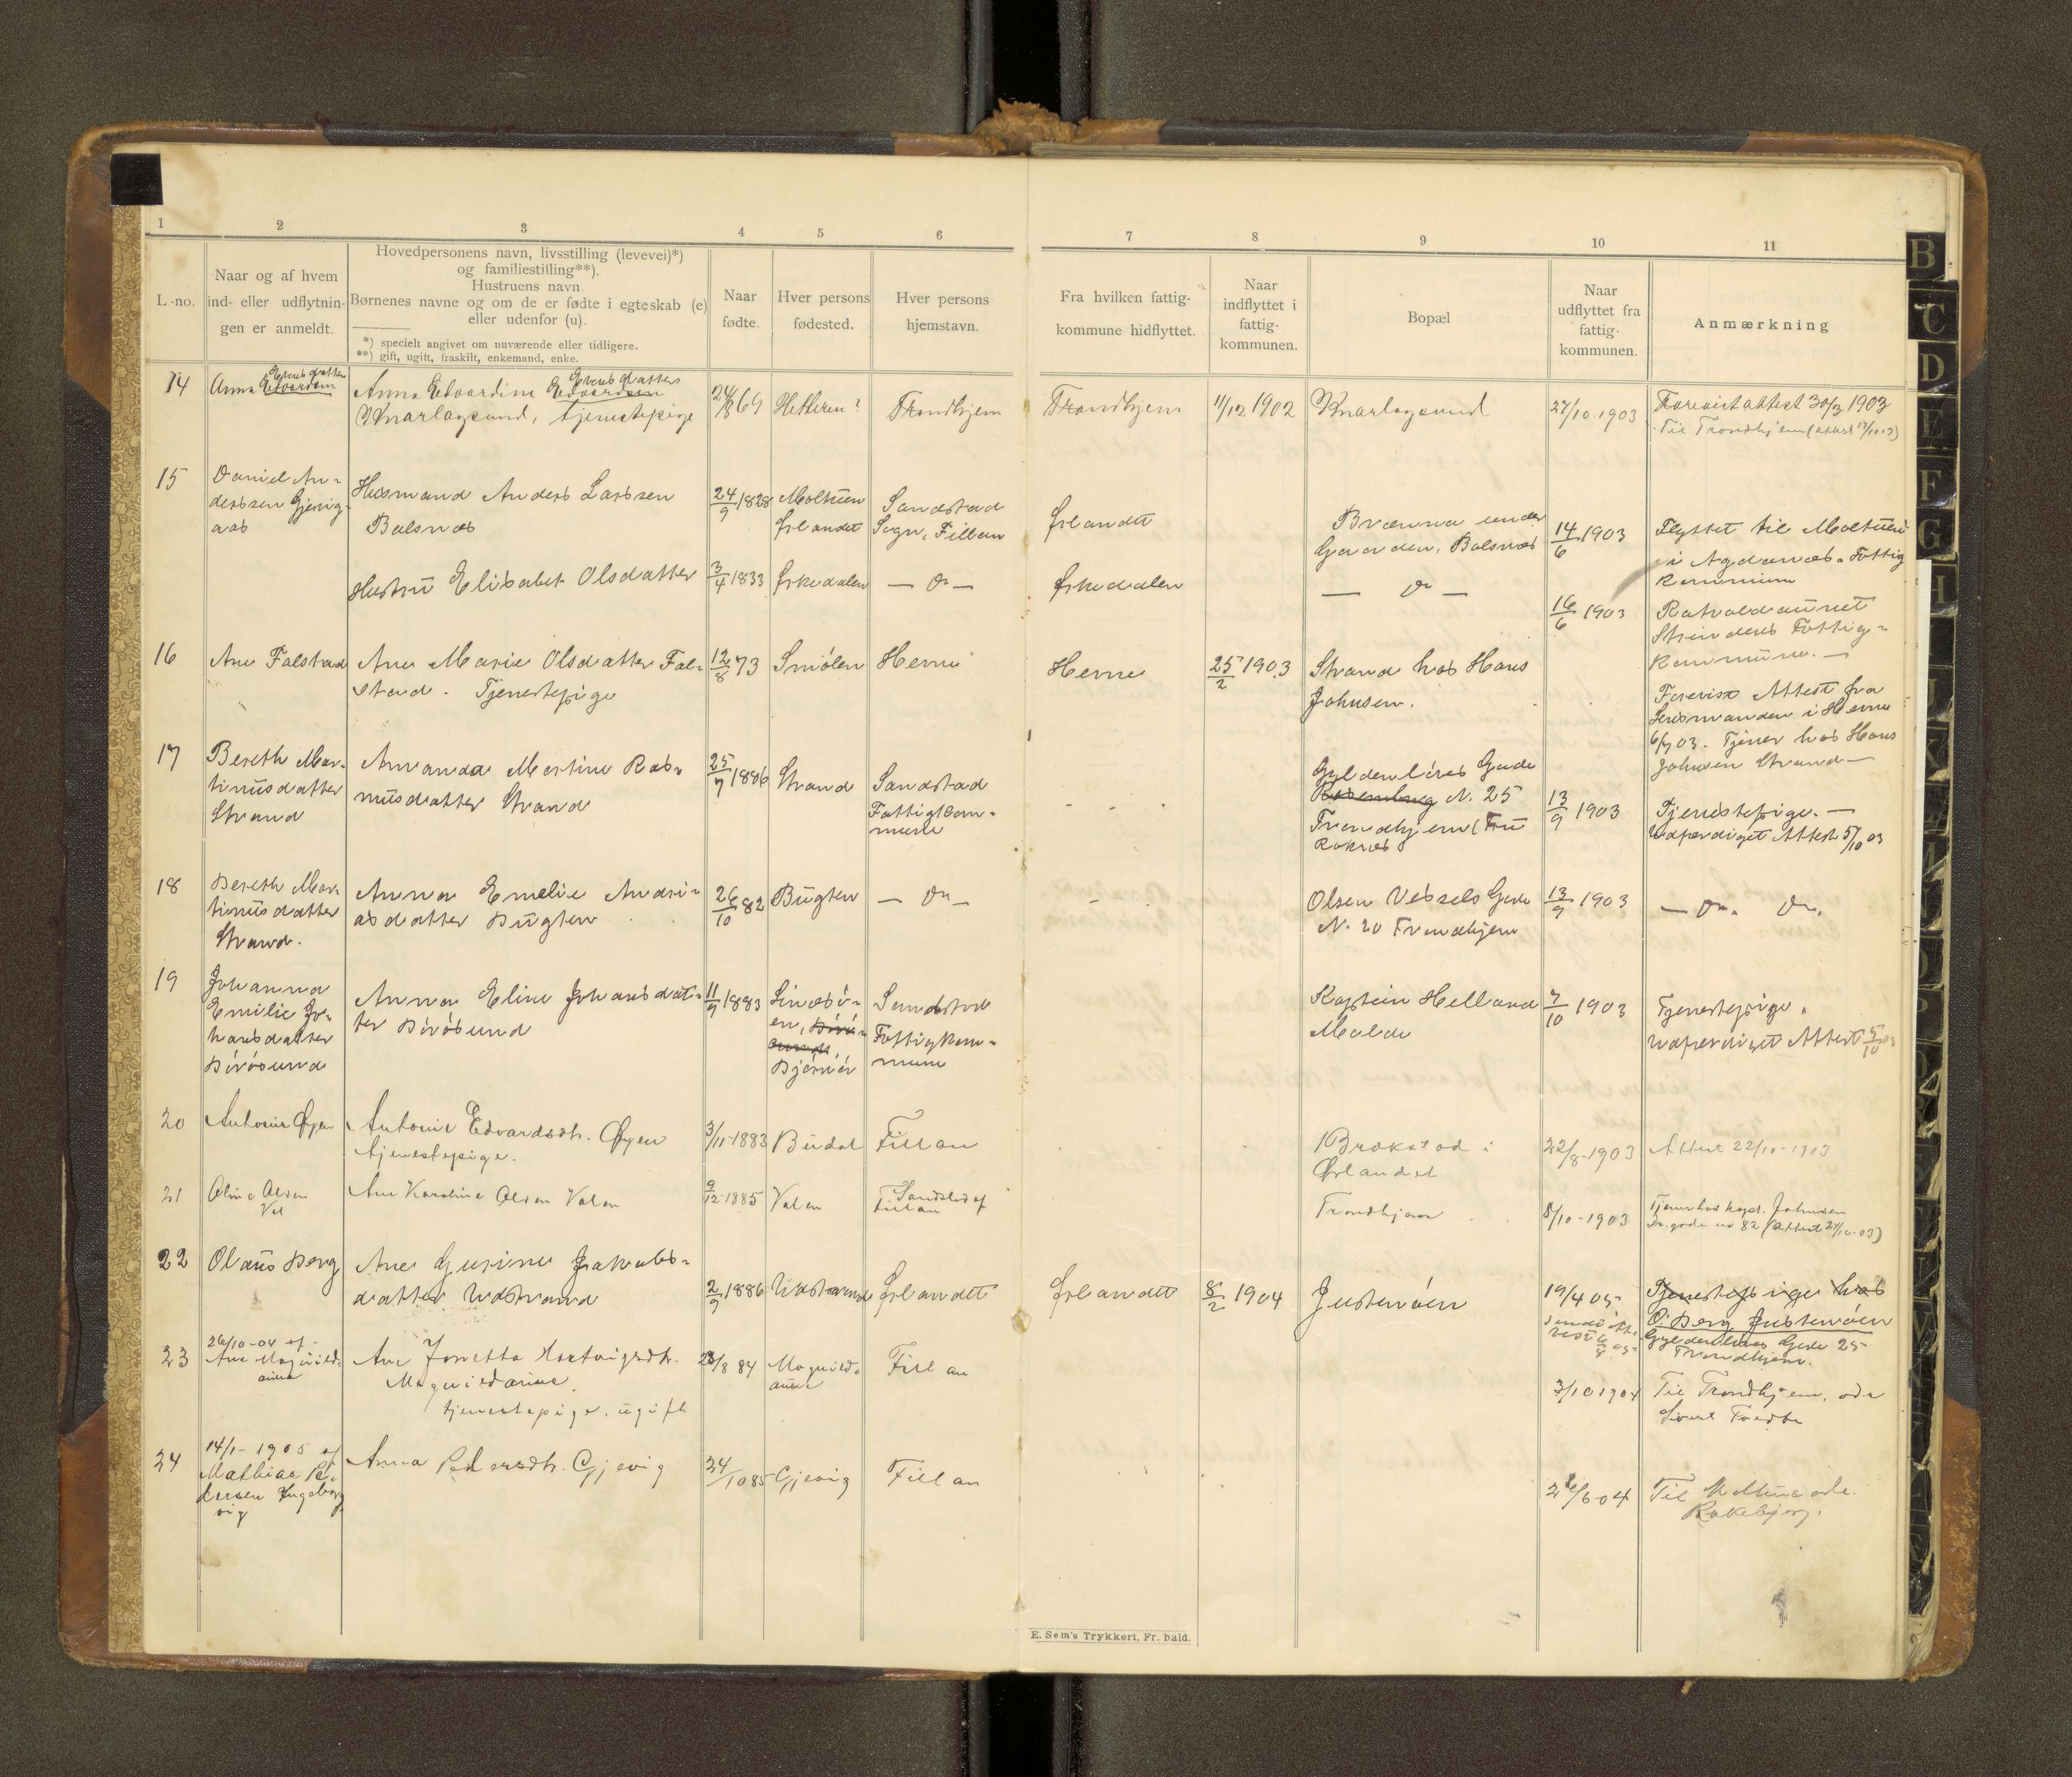 1 2 3 4 5 6 7 8 9 10 11
L.-no.
Naar og af hvem
ind- eller udflytnin-
gen er anmeldt.
Hovedpersonens navn, livsstilling (levevei)*)
og familiestilling**).
Hustruens navn.
Børnenes navne og om de er fødte i egteskab (e)
eller udenfor (u).
*) specielt angivet om nuværende eller tidligere.
**) gift, ugift, fraskilt, enkemand, enke.
Naar
fødte.
Hver persons
fødested.
Hver persons
hjemstavn.
Fra hvilken fattig-
kommune hidflyttet.
Naar
indflyttet i
fattig-
kommunen.
Bopæl
Naar
udflyttet fra
fattig-
kommunen.
Anmærkning
14
Evensdatter
Anna Edvardsen
Evensdatter
Anna Edvardine Edvardsen
Knarlagsund, tjenestepige
24/8 69
Hitteren?
Trondhjem
Trondhjem
11/12 1902
Knarlagsund
27/10-1903
Forevist attest 30/3 1903
Til Trondhjem (attest 17/10-03)
15
Daniel An-
derssen Gjeng-
aas
Husmand Anders Larssen
Balsnes
24/9 1828
Moltuen
Ørlandet
Sandstad
Sogn, Fillan
Ørlandet
Brænna under
Gaarden, Balsnæs
14/6 1903
Flyttet til Moltuen
i Agdenæs Fattig
Kommune
Hustru Elisabet Olsdatter
3/4 1833
Ørkedalen
— Do —
Ørkedalen
— Do —
16/6 1903
Ratvoldaunet
Strindens Fattig-
Kommune. —
16
Ane Falstad
Ane Marie Olsdatter Fal-
stad - Tjenestepige
12/8 73
Smølen
Hevne
Hevne
25/2 1903
Strand hos Hans
Johnsen.
Forevist Attest fra
Lensmanden i Hevne
6/7 03. Tjener hos Hans
Johnsen Strand —
17
Bereth Mar-
tinusdatter
Strand
Amanda Martine Ras-
musdatter Strand
25/7 1886
Strand
Sandstad
Fattigkom-
mune
Gyldenløves Gade
Rosenborg N. 25
Trondhjem (Fru
Roknes
13/9 1903
Tjenestepige. —
Udfærdiget Attest 5/10 03
18
Bereth Mar-
tinusdatter
Strand.
Anna Emelie Andri-
asdatter Bugten
26/10 82
Bugten
— Do —
Olsen Vessels Gade
N. 20 Trondhjem
13/9 1903
— Do. Do.
19
Johanna
Emilie Jo-
hansdatter
Børøsund
Anna Eline Johansdat-
ter Børøsund
11/9 1883
Linesø-
en,
Bjørnør
Sandstad
Fattigkom-
mune
Kaptein Helland
Molde
7/10 1903
Tjenestepige.
Udfærdiget Attest 5/10 03
20
Antonie Øyen
Antonie Edvardsdtr. Øyen
tjenestepige.
3/11-1883
Budal
Fillan
Brækstad i
Ørlandet
22/8-1903
Attest 22/10-1903
21
Oline Olsen
Val
Ane Karoline Olsen Valen
9/12-1885
Valen
Sandstad af
Fillan
Trondhjem
8/10-1903
Tjener hos kapt. Johnsen
Dr. gade no 82 (attest 27/10-03)
22
Olaus Berg
Ane Gurine Jakobs-
datter Udstrand
2/9 1886
Udstrand
Ørlandet
Ørlandet
8/2 1904
Justenøen
19/4 05
Tjenestepige hos
O. Berg Justenøen
Gyldenløves Gade 25
Trondhjem.
23
26/10-04 af
Ane Magnild-
aune
Ane Jonetta Hartvigsdtr.
Magnildaune
tjenestepige. ugift
28/8 84
Magnild-
aune
Fillan
3/10 1904
Til Trondhjem, adr
Sivert Tredte
24
14/1-1905 af
Mathias Pe-
dersen Ingeborg-
vig
Anna Pedersdtr. Gjevig
24/10 85
Gjevig
Fillan
26/6-04
Til Meltun adr.
Rakebjørg.
E. Sem's Trykkeri, Fr.hald.
B
C
D
E
F
G
H
I
K